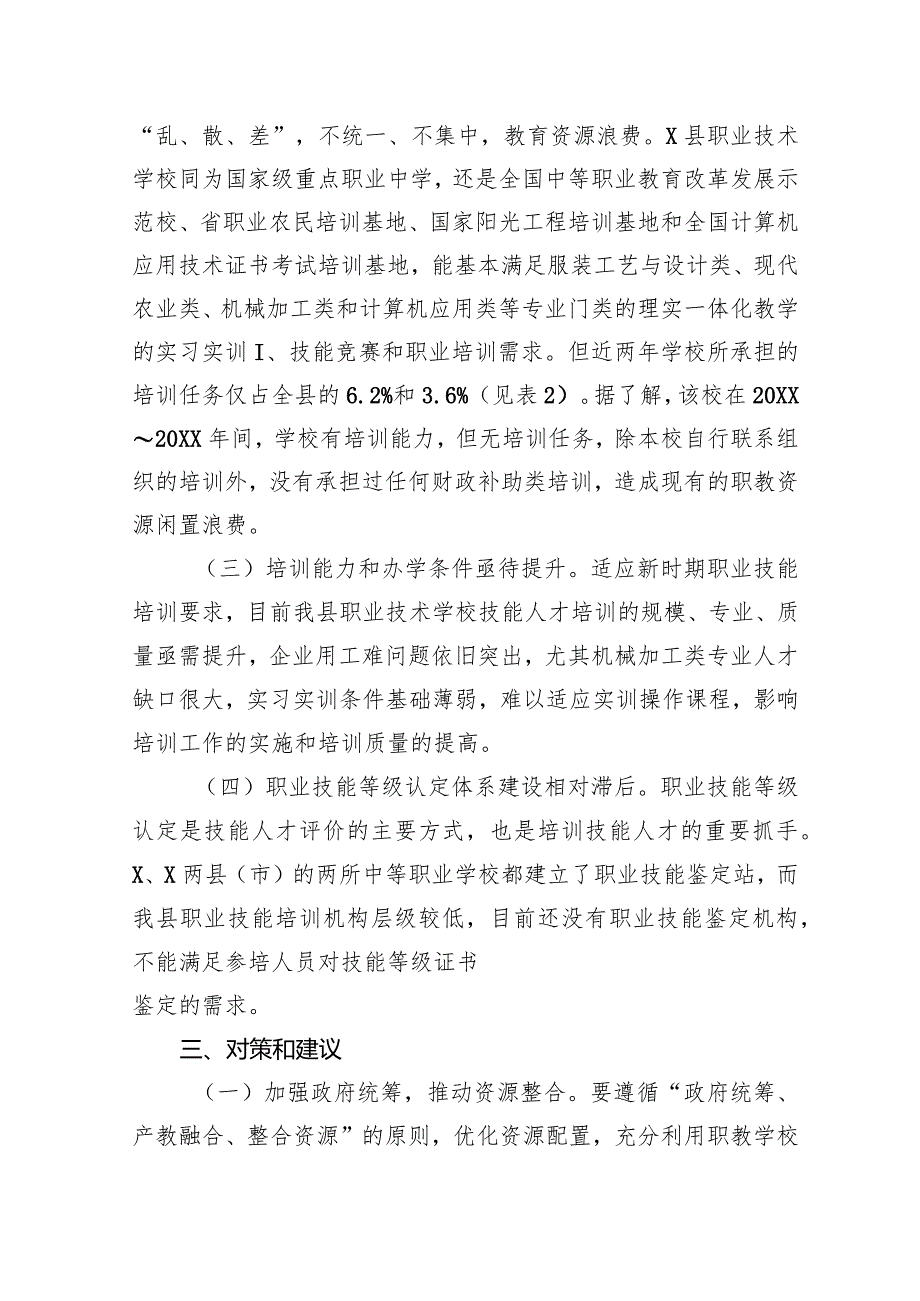 “乱、散、差”，不统一、不集中，教育资源浪费。X 县职业技术
学校同为国家级重点职业中学，还是全国中等职业教育改革发展示
范校、省职业农民培训基地、国家阳光工程培训基地和全国计算机
应用技术证书考试培训基地，能基本满足服装工艺与设计类、现代
农业类、机械加工类和计算机应用类等专业门类的理实一体化教学
的实习实训 I、技能竞赛和职业培训需求。但近两年学校所承担的
培训任务仅占全县的 6.2%和 3.6%（见表 2）。据了解，该校在 20XX
～20XX 年间，学校有培训能力，但无培训任务，除本校自行联系组
织的培训外，没有承担过任何财政补助类培训，造成现有的职教资
源闲置浪费。
（三）培训能力和办学条件亟待提升。适应新时期职业技能
培训要求，目前我县职业技术学校技能人才培训的规模、专业、质
量亟需提升，企业用工难问题依旧突出，尤其机械加工类专业人才
缺口很大，实习实训条件基础薄弱，难以适应实训操作课程，影响
培训工作的实施和培训质量的提高。
（四）职业技能等级认定体系建设相对滞后。职业技能等级
认定是技能人才评价的主要方式，也是培训技能人才的重要抓手。
X、X 两县（市）的两所中等职业学校都建立了职业技能鉴定站，而
我县职业技能培训机构层级较低，目前还没有职业技能鉴定机构，
不能满足参培人员对技能等级证书
鉴定的需求。
三、对策和建议
（一）加强政府统筹，推动资源整合。要遵循“政府统筹、
产教融合、整合资源”的原则，优化资源配置，充分利用职教学校